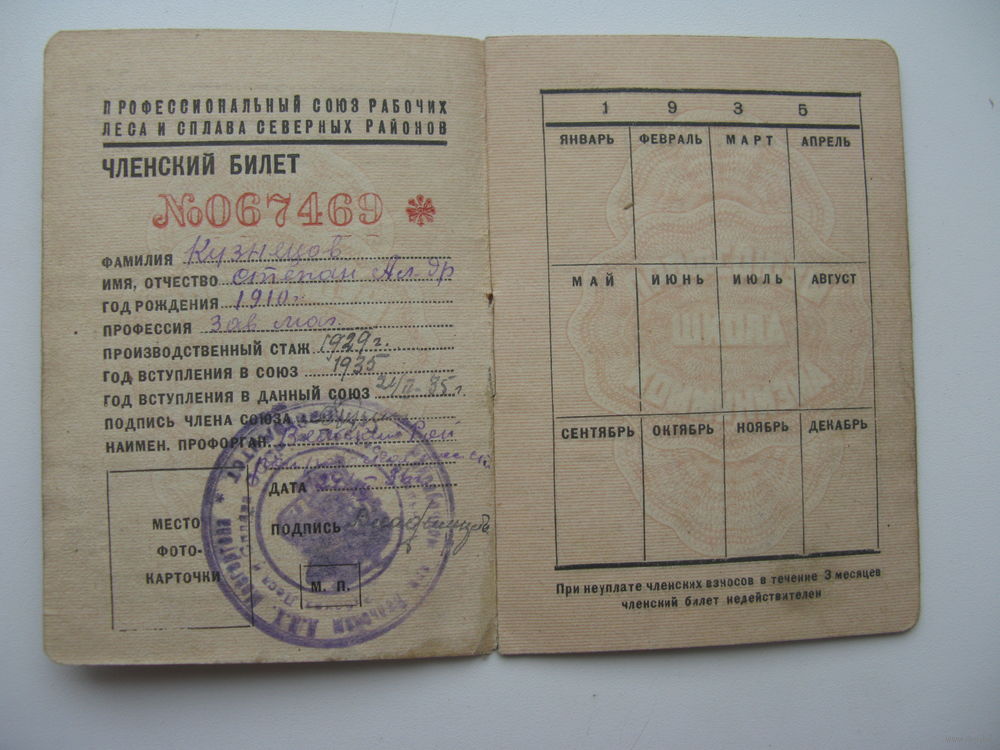 ПРОФЕССИОНАЛЬНЫЙ СОЮЗ РАБОЧИХ
ЛЕСА И СПЛАВА СЕВЕРНЫХ РАЙОНОВ
ЧЛЕНСКИЙ БИЛЕТ
№067469
ФАМИЛИЯ Кузнецов
ИМЯ, ОТЧЕСТВО Степан Ал др
ГОД РОЖДЕНИЯ 1910 г.
ПРОФЕССИЯ Зав маг.
ПРОИЗВОДСТВЕННЫЙ СТАЖ 1929 г.
ГОД ВСТУПЛЕНИЯ В СОЮЗ 1935
ГОД ВСТУПЛЕНИЯ В ДАННЫЙ СОЮЗ
ПОДПИСЬ ЧЛЕНА СОЮЗА
НАИМЕН. ПРОФОРГАН.
ДАТА
МЕСТО
ФОТО-
КАРТОЧКИ
ПОДПИСЬ
М. П.
1 9 3 5
ЯНВАРЬ ФЕВРАЛЬ МАРТ АПРЕЛЬ
МАЙ ИЮНЬ ИЮЛЬ АВГУСТ
СЕНТЯБРЬ ОКТЯБРЬ НОЯБРЬ ДЕКАБРЬ
При неуплате членских взносов в течение 3 месяцев
членский билет недействителен